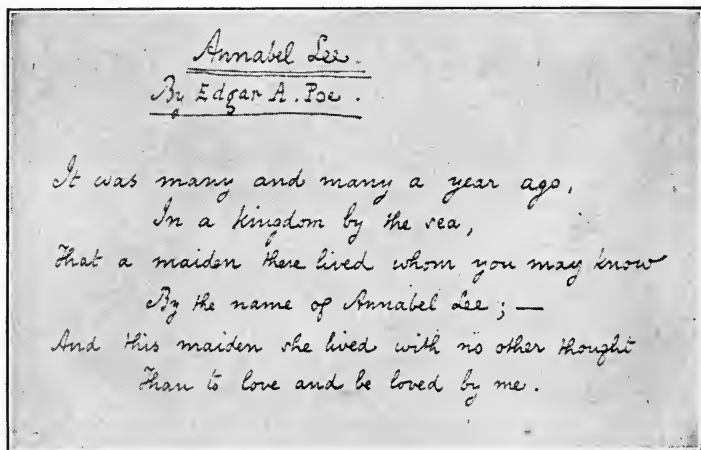 Annabel Lee.
By Edgar A. Poe.
It was many and many a year ago,
In a kingdom by the sea,
That a maiden there lived whom you may know
By the name of Annabel Lee; —
And this maiden she lived with no other thought
Than to love and be loved by me.